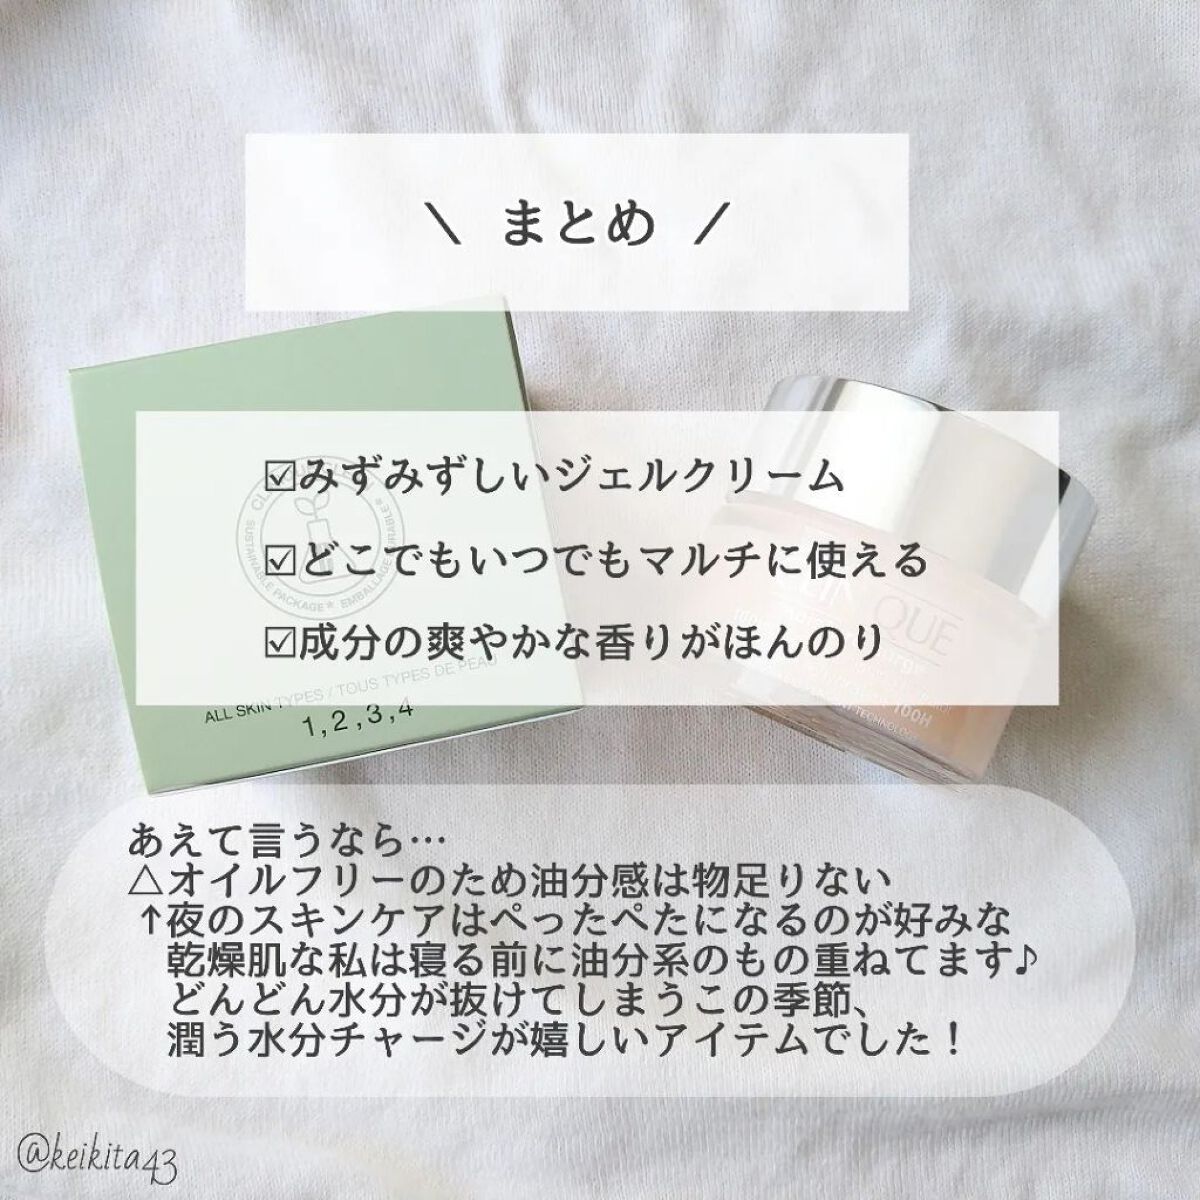 \ まとめ /
☑みずみずしいジェルクリーム
☑どこでもいつでもマルチに使える
☑成分の爽やかな香りがほんのり
SUSTAINABLE PACKAGE* EMBALLAGE DURABLE*
QUE
100H
TECHNOLOGY
ALL SKIN TYPES / TOUS TYPES DE PEAU
1,2,3,4
あえて言うなら…
△オイルフリーのため油分感は物足りない
↑夜のスキンケアはぺったぺたになるのが好みな
乾燥肌な私は寝る前に油分系のもの重ねてます♪
どんどん水分が抜けてしまうこの季節、
潤う水分チャージが嬉しいアイテムでした！
@keikita43